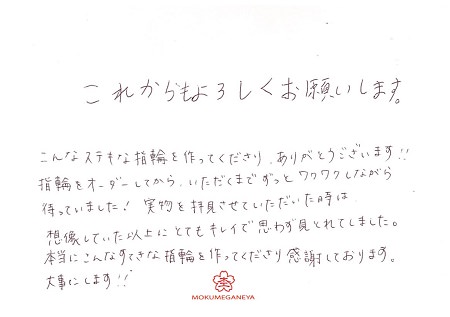 これからもよろしくお願いします。
こんなステキな指輪を作ってくださり、ありがとうございます!!
指輪をオーダーしてから、いただくまでずっとワクワクしながら
待っていました! 実物を拝見させていただいた時は、
想像していた以上にとてもキレイで思わず見とれてしました。
本当にこんなすてきな指輪を作ってくださり感謝しております。
大事にします!!
MOKUMEGANEYA